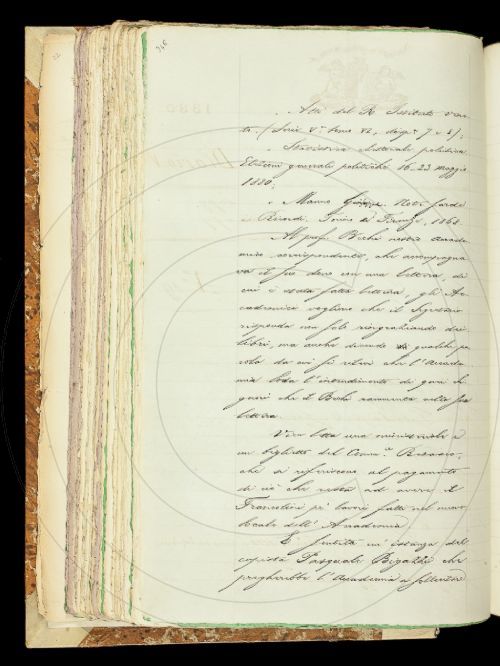 Atti del R. Istituto Vene-
to. (Serie V.ª tomo VI, disp.ª 7 e 8);
Statistica elettorale politica
Elezioni generali politiche 16-23 maggio
1880;
Manno
Ricordi, 1868
Al prof. Bechi nostro Accade-
mico corrispondente, che accompagna-
va il suo dono con una lettera, di
cui è stata fatta lettura, gli Ac-
cademici vogliono che il Segretario
risponda non solo ringraziando dei
libri, ma anche dicendo qualche pa-
rola da cui si rilevi che l'Accade-
mia loda l'intendimento di quei
che il Bechi rammenta nella sua
lettera.
Vien letta una ministeriale e
un biglietto del Comm.
che si riferiscono al pagamento
di ciò che resta ad avere il
Franceschi pe' lavori fatti nel nuovo
locale dell' Accademia.
È sentita un' istanza del
copista Pasquale Bigatti che
pregherebbe l' Accademia a